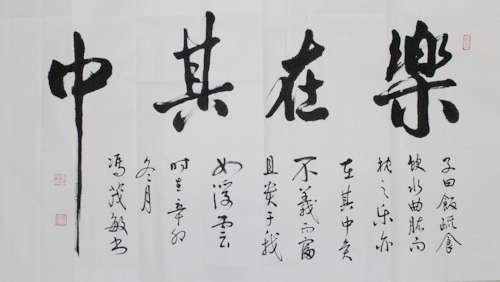 樂在其中
子曰飯疏食
飲水曲肱而
枕之樂亦
在其中矣
不義而富
且貴于我
如浮雲
時在辛卯
冬月
馮茂敏书